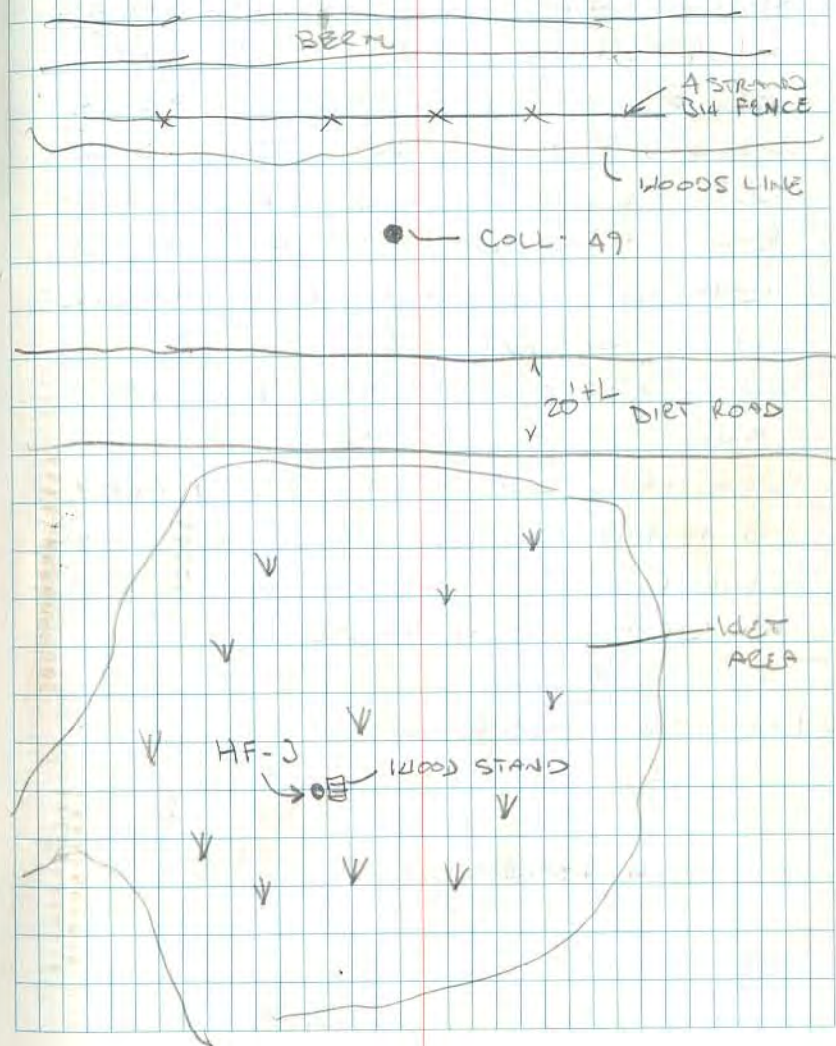 BERM
4 STRAND
BW FENCE
WOODS LINE
COLL- 49
DIRT ROAD
WET
AREA
HF-J
WOOD STAND